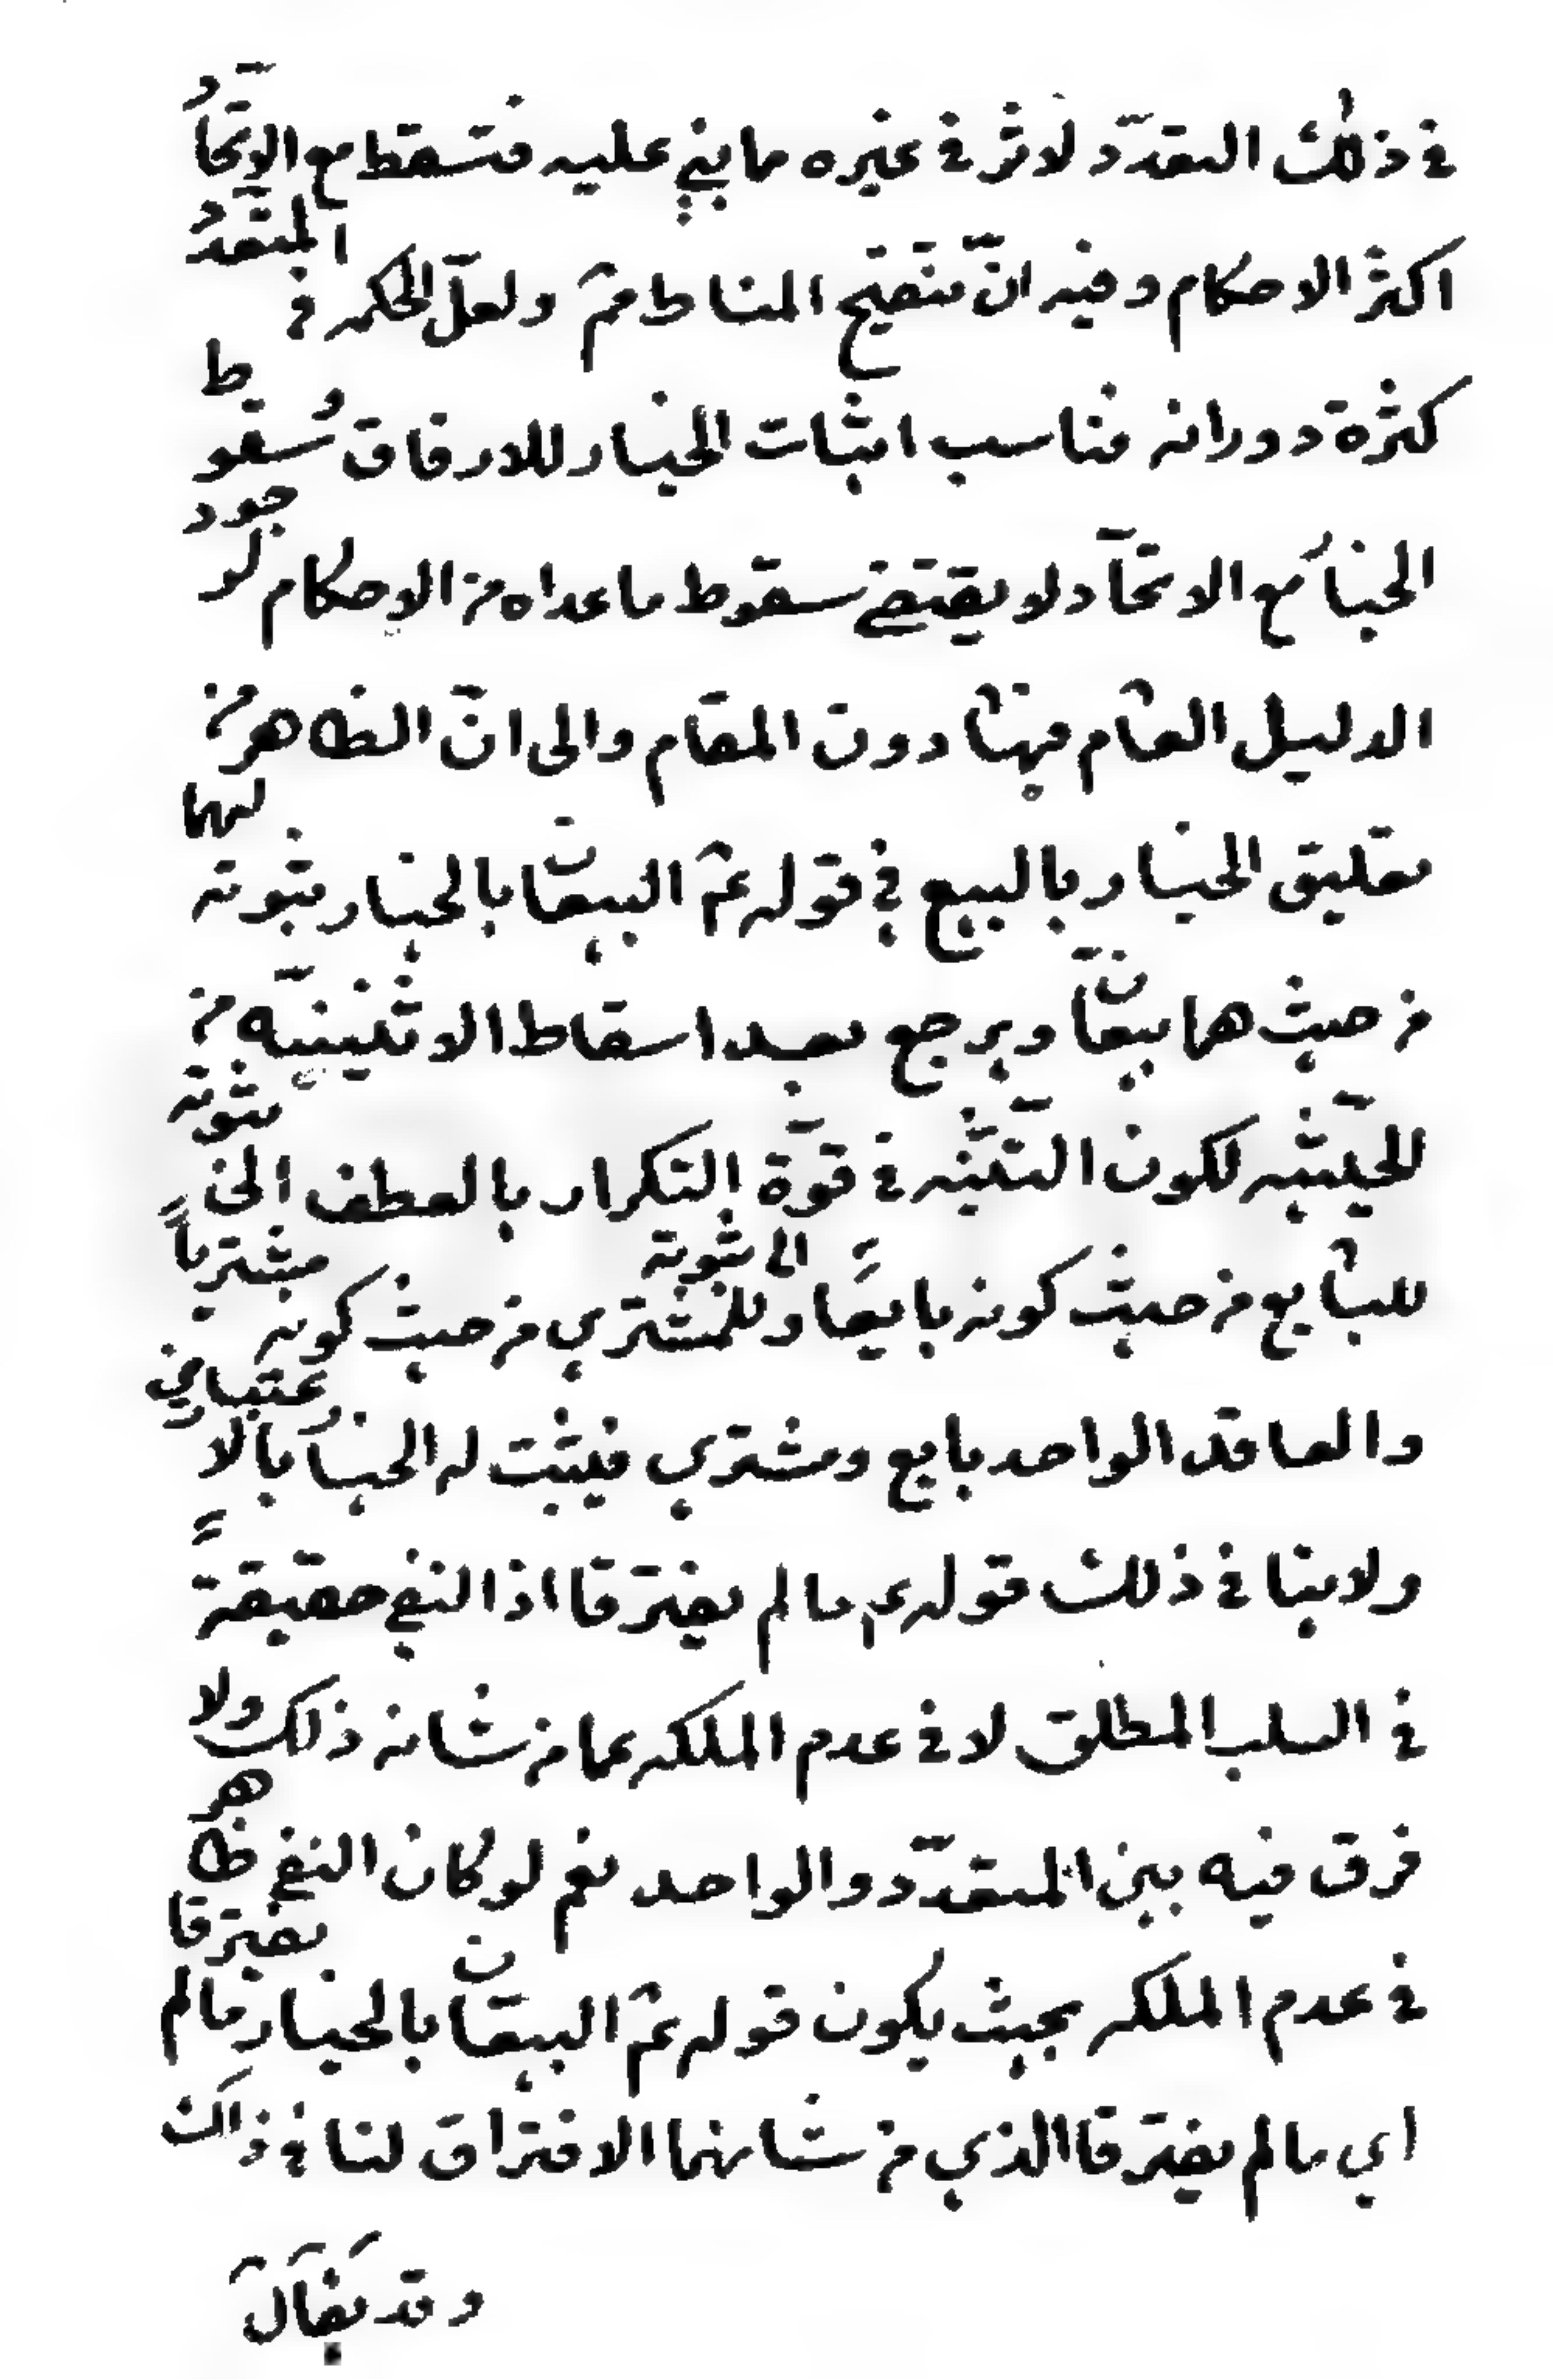 في ذلك التعدّد لاثر في غيره مما بني عليه فتسقط مع الاتّحاد
اكثر الاحكام وفيه انّ تنقيح المناط مم ولعلّ الحكمه في المتعدّد
كثرة دورانه فناسب اثبات الخيار للارفاق وسقوط
الخيار مع الاتحاد لا يقتضي سقوط ما عداه من الاحكام لوجود
الدليل العام فيها دون المقام والى انّ الظاهر من
تعليق الخيار بالبيع في قوله عم البيّعان بالخيار ثبوته لهما
من حيث هما بيّعان ويرجع بعد اسقاط الاثنينيّة من
الحيثيه لكون التّثنيه في قوّة التكرار بالعطف الى ثبوته
للبايع من حيث كونه بايعاً والى ثبوته للمشتري من حيث كونه مشترياً
والعاقد الواحد بايع ومشتري فيثبت له الخيار بالاعتبارين
ولا ينافي ذلك قوله عم ما لم يفترقا اذ النفي حقيقةً
في السلب المطلق لا في عدم الملكه عما من شانه ذلك ولا
فرق فيه بين المتعدّد والواحد نعم لو كان النفي ظاهر
في عدم الملكه بحيث يكون قوله عم البيعان بالخيار ما لم يفترقا
اي ما لم يفترقا الذي من شانهما الافتراق لنافى ذلك
وقد يقال